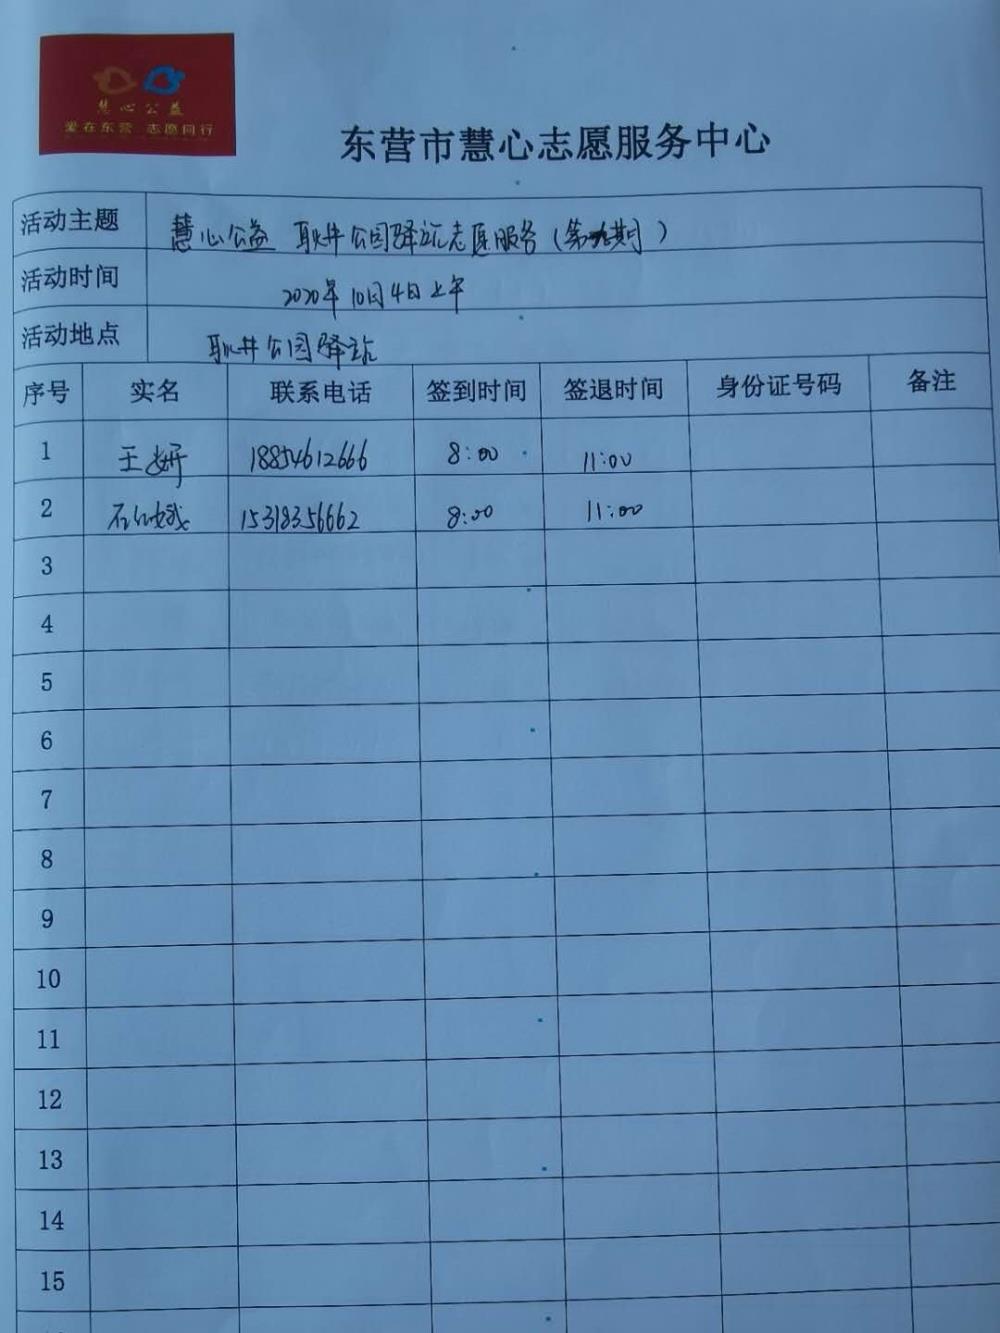 慧心公益
爱在东营 志愿同行
东营市慧心志愿服务中心
活动主题 慧心公益 耿井公园驿站志愿服务(第期)
活动时间 2020年10月4日上午
活动地点 耿井公园驿站
序号 实名 联系电话 签到时间 签退时间 身份证号码 备注
1 王妍 18854612666 8:00 11:00
2 15318356662 8:00 11:00
3
4
5
6
7
8
9
10
11
12
13
14
15